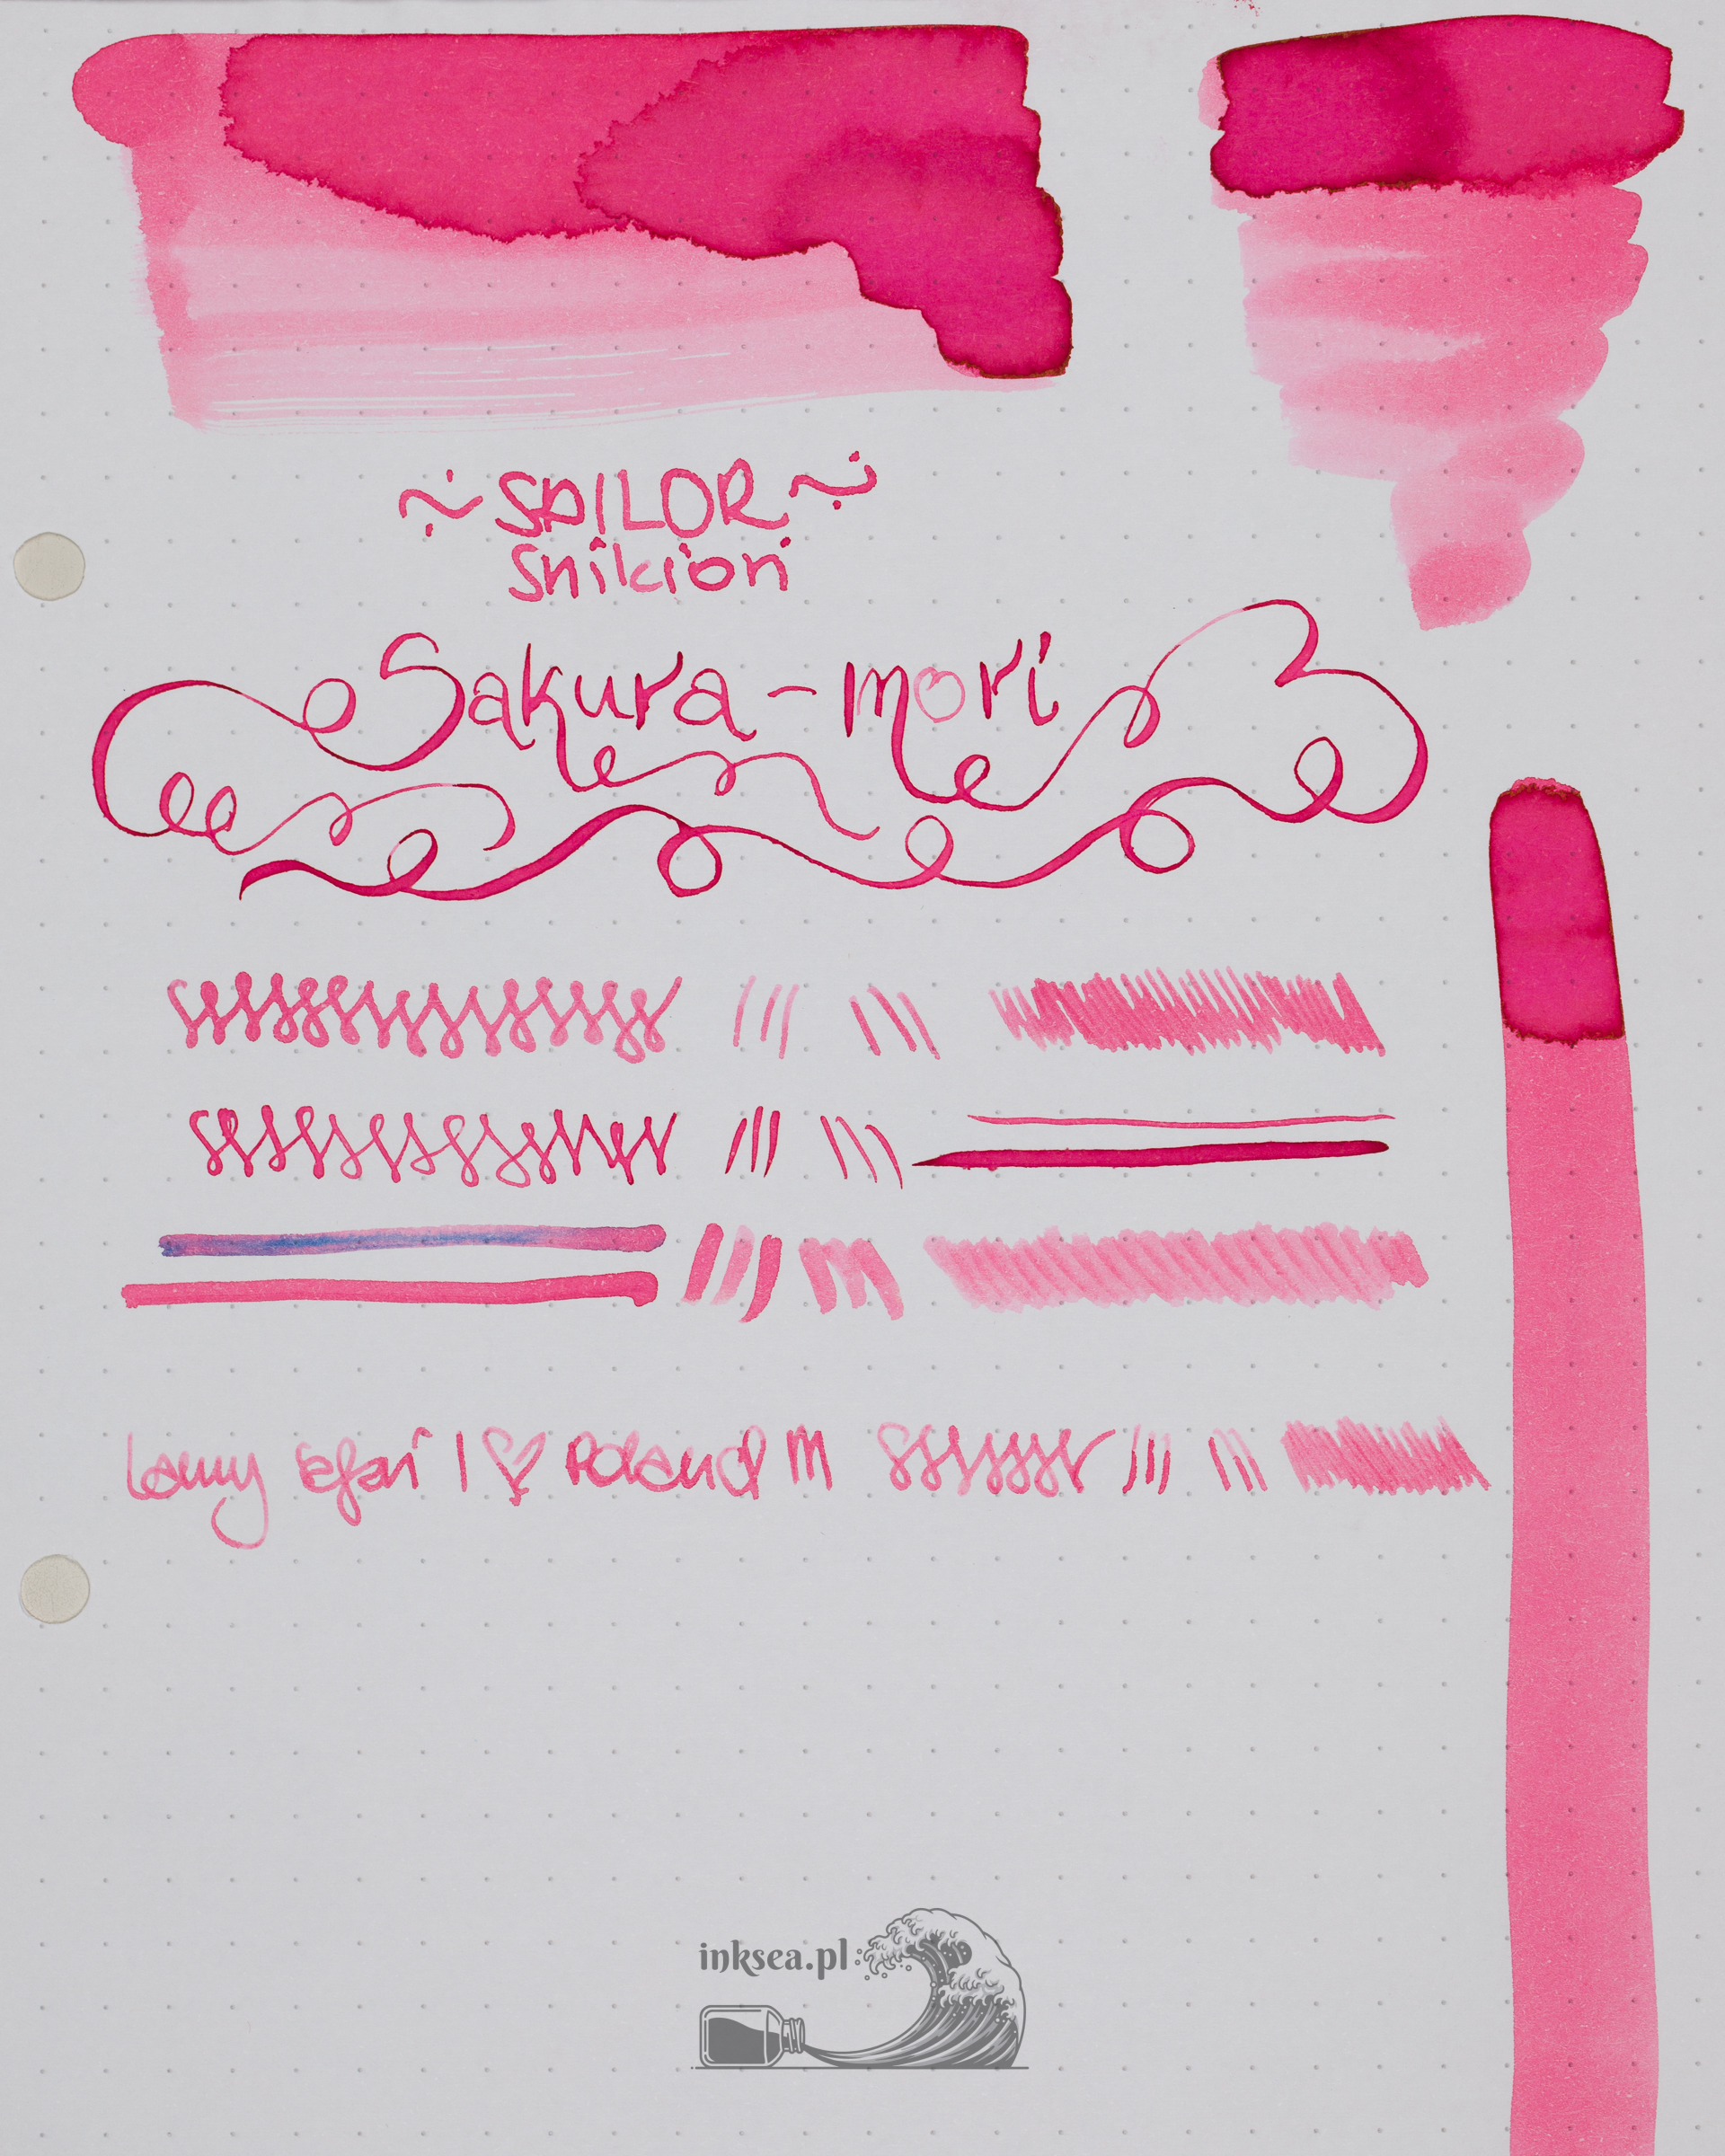 ~ SAILOR ~
Shikiori
Sakura-mori
Lamy safari | ♡ Poland m
inksea.pl